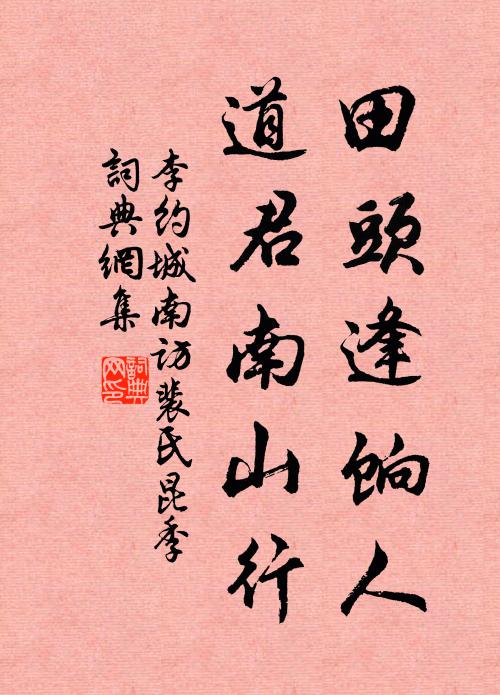 田頭逢餉人
道君南山行
李約城南訪裴氏昆季
詞典網集
詞典
网印